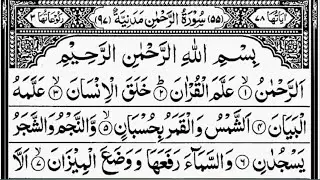 اٰیَاتُهَا ٧٨ (٥٥) سُوْرَةُ الرَّحْمٰنِ مَدَنِیَّةٌ (٩٧) رُكُوْعَاتُهَا ٣
بِسْمِ اللّٰهِ الرَّحْمٰنِ الرَّحِیْمِ
اَلرَّحْمٰنُ ۙ﴿١﴾ عَلَّمَ الْقُرْاٰنَ ؕ﴿٢﴾ خَلَقَ الْاِنْسَانَ ۙ﴿٣﴾ عَلَّمَهُ
الْبَیَانَ ﴿٤﴾ اَلشَّمْسُ وَالْقَمَرُ بِحُسْبَانٍ ۪﴿٥﴾ وَّالنَّجْمُ وَالشَّجَرُ
یَسْجُدٰنِ ﴿٦﴾ وَالسَّمَآءَ رَفَعَهَا وَوَضَعَ الْمِیْزَانَ ۙ﴿٧﴾ اَلَّا